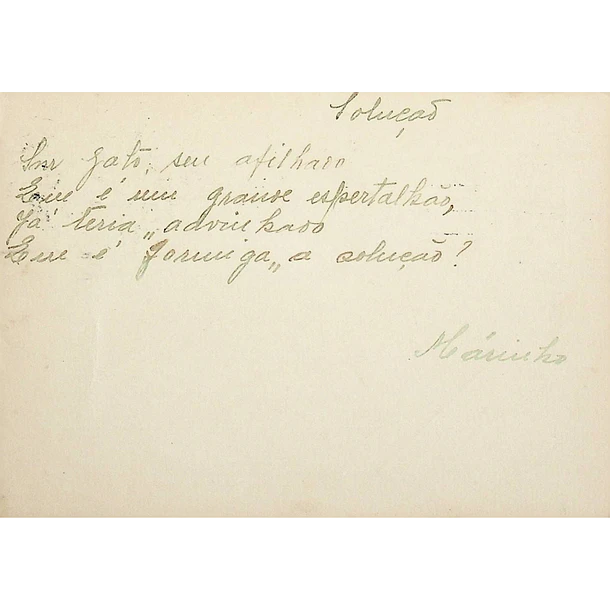 Solução
Snr Gato, seu afilhado
Que é um grande espertalhão,
Já teria „advinhado
Que é formiga„ a solução?
Márinho